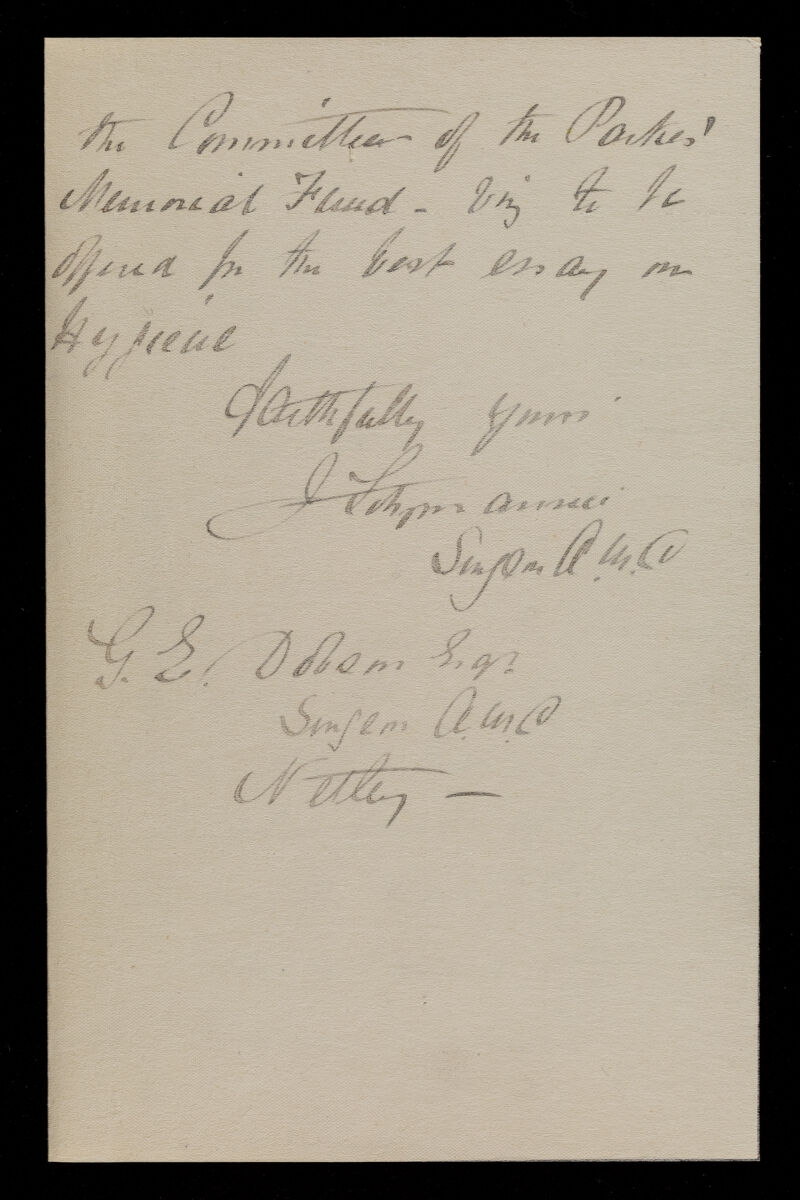 the Committee of the Parkes'
Memorial Fund - viz to be
offered for the best essay on
Hygiene
Faithfully yours
J
Surgeon A.M.D
G. E. Dobson Esqr
Surgeon A.M.D
Netley —